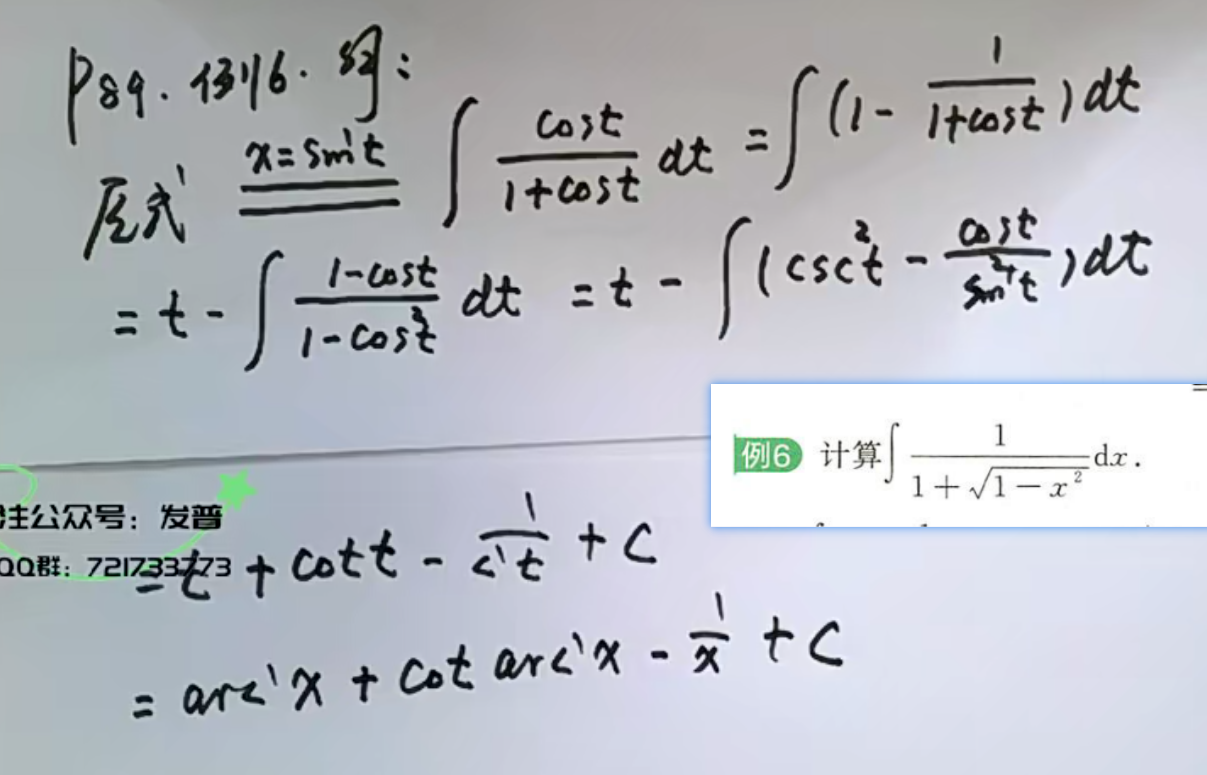 P89. 例6. 解:
原式 x=sint ∫ cost/(1+cost) dt = ∫(1 - 1/(1+cost))dt
= t - ∫ (1-cost)/(1-cos²t) dt = t - ∫(csc²t - cost/sin²t)dt
例6 计算∫ 1/(1+√(1-x²)) dx.
注公众号：发普
QQ群：721733773
= t + cot t - 1/t + C
= arc x + cot arc x - 1/x + C